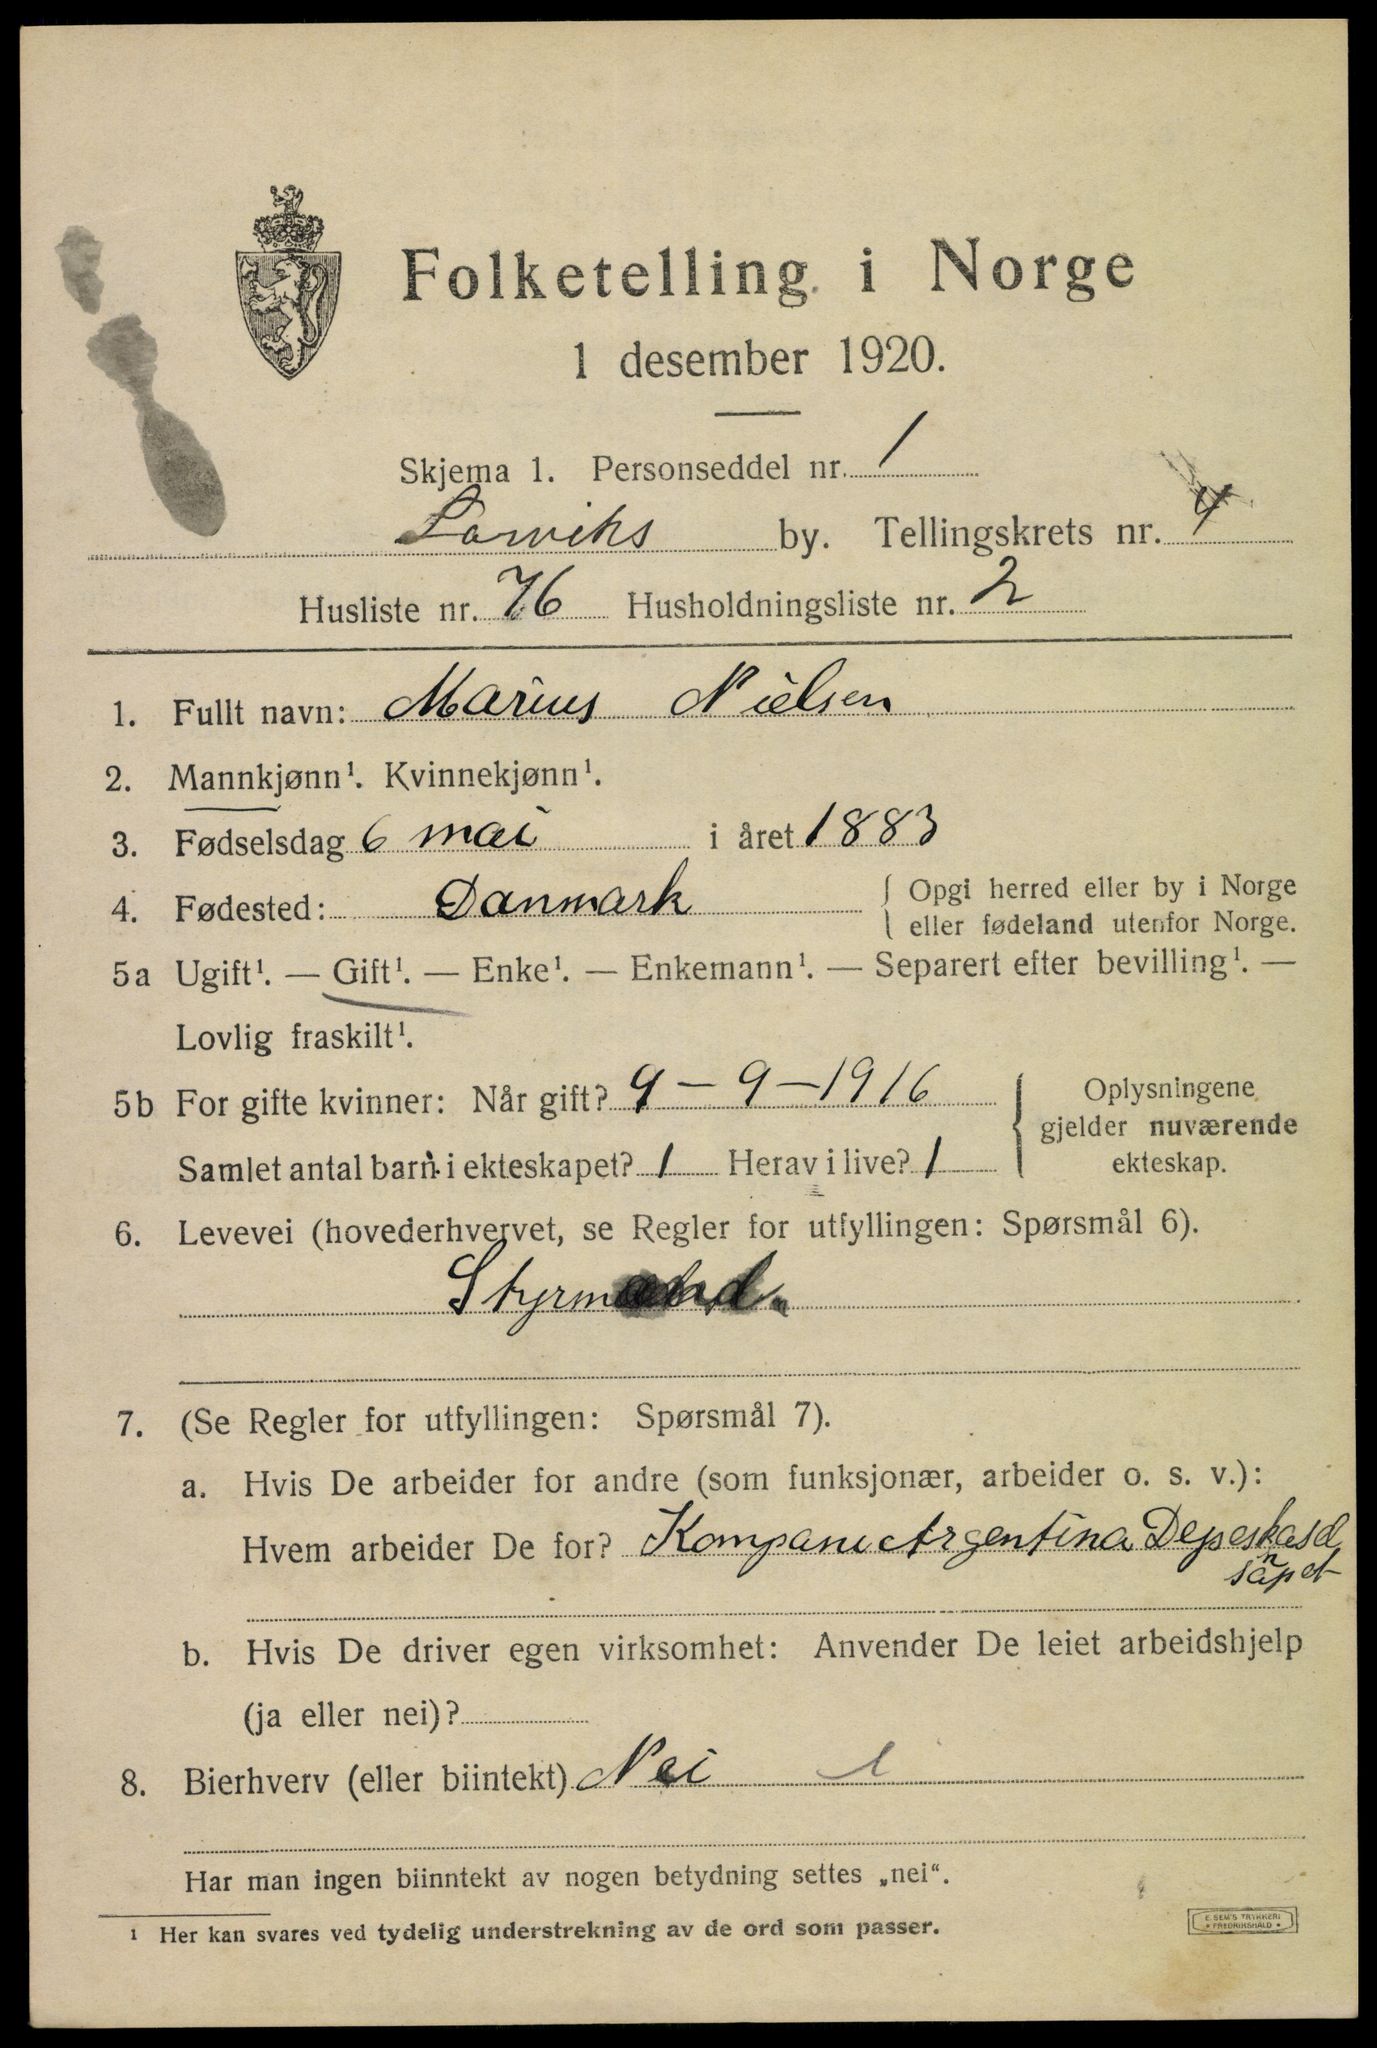 Folketelling i Norge
1 desember 1920.
Skjema 1. Personseddel nr. 1
Larviks by. Tellingskrets nr. 4
Husliste nr. 76 Husholdningsliste nr. 2
1. Fullt navn: Marius Nielsen
2. Mannkjønn¹. Kvinnekjønn¹.
3. Fødselsdag 6 mai i året 1883
4. Fødested: Danmark { Opgi herred eller by i Norge
eller fødeland utenfor Norge.
5a Ugift¹. — Gift¹. — Enke¹. — Enkemann¹. — Separert efter bevilling¹. —
Lovlig fraskilt¹.
5b For gifte kvinner: Når gift? 9-9-1916
Samlet antal barn i ekteskapet? 1 Herav i live? 1
Oplysningene
gjelder nuværende
ekteskap.
6. Levevei (hovederhvervet, se Regler for utfyllingen: Spørsmål 6).
Styrmand.
7. (Se Regler for utfyllingen: Spørsmål 7).
a. Hvis De arbeider for andre (som funksjonær, arbeider o. s. v.):
Hvem arbeider De for? Kompani Argentina
b. Hvis De driver egen virksomhet: Anvender De leiet arbeidshjelp
(ja eller nei)?
8. Bierhverv (eller biintekt) Nei
Har man ingen biinntekt av nogen betydning settes „nei“.
¹ Her kan svares ved tydelig understrekning av de ord som passer.
E. SEM'S TRYKKERI
* FREDRIKSHALD *